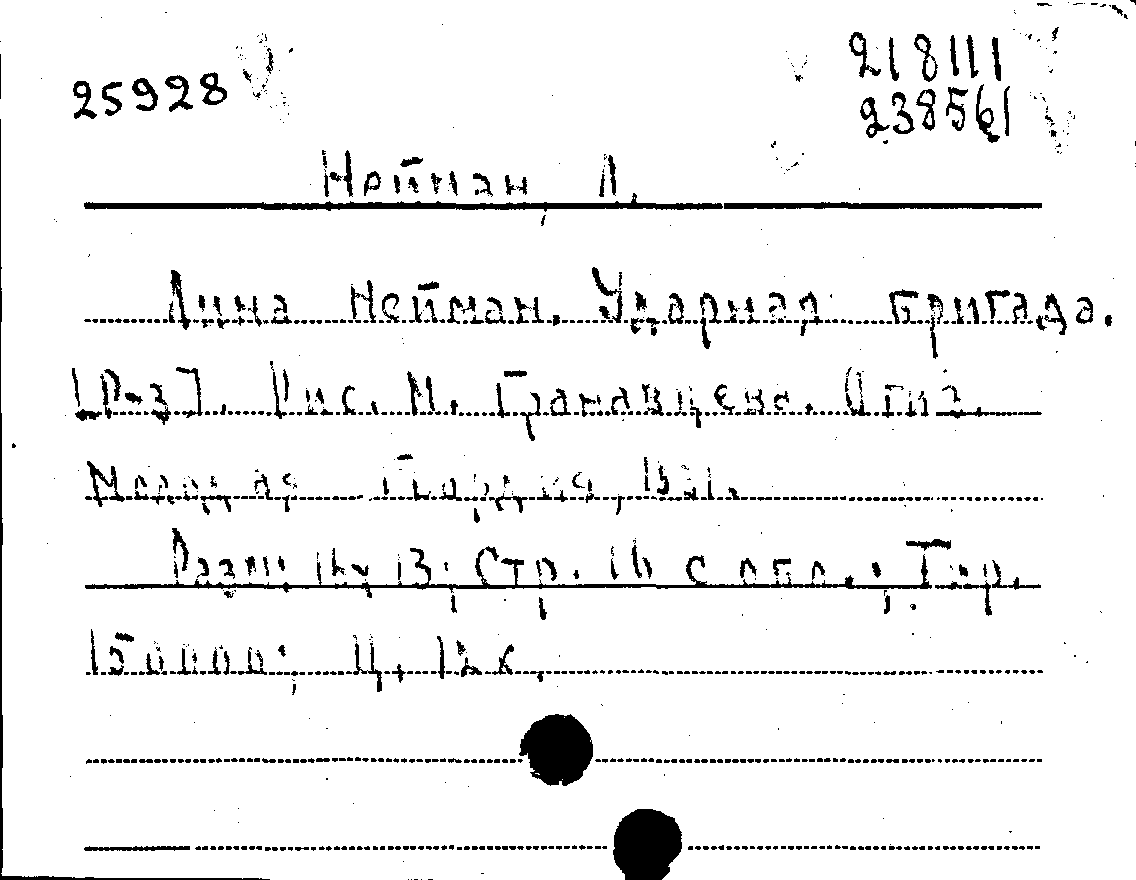 25928
218111
238561
Нейман, Л.
Лина Нейман. Ударная бригада.
[Р-з]. Рис. М. Гранавцева. Огиз.
Молодая Гвардия, 1931.
Разм: 16х13; Стр. 16 с обл.; Тир.
150000; Ц. 12 к.